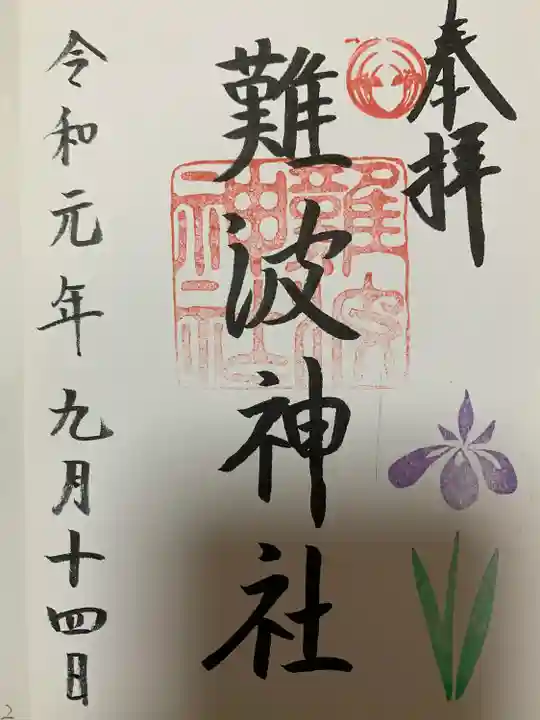 奉拝
難波神社
令和元年九月十四日
2